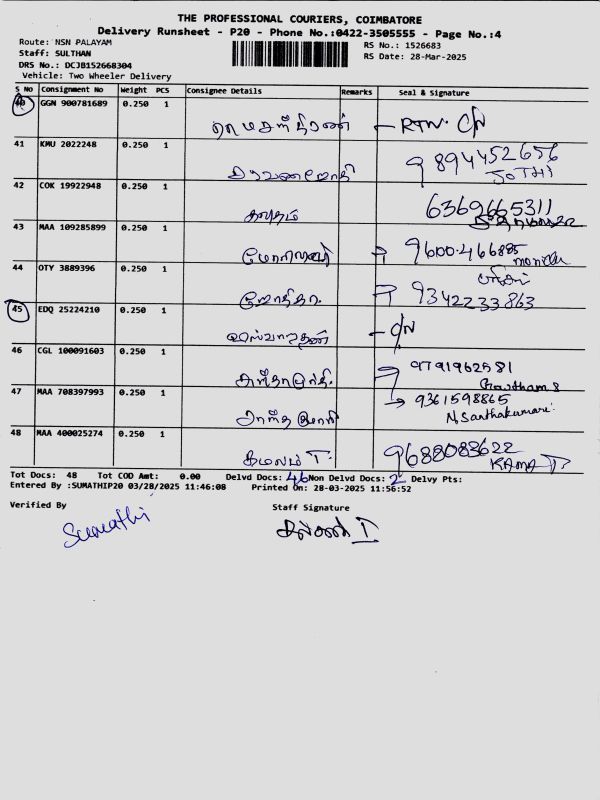 THE PROFESSIONAL COURIERS, COIMBATORE
Delivery Runsheet - P20 - Phone No.:0422-3505555 - Page No.:4
Route: NSN PALAYAM
RS No.: 1526683
Staff: SULTHAN
RS Date: 28-Mar-2025
DRS No.: DCJB152668304
Vehicle: Two Wheeler Delivery
S No Consignment No Weight PCS Consignee Details Remarks Seal & Signature
40 GGN 900781689 0.250 1
RTN. C/N
41 KMU 2022248 0.250 1
9894452656
JOTHI
42 COK 19922948 0.250 1
6369665311
43 MAA 109285899 0.250 1
9600.466885
44 OTY 3889396 0.250 1
ஜோதிகா. 9342233863
45 EDQ 25224210 0.250 1
- C/N
46 CGL 100091603 0.250 1
9791962581
Gowtham S
47 MAA 708397993 0.250 1
9361598865
N. Santhakumari
48 MAA 400025274 0.250 1
கமலம் T. 9688083622
KAMA T
Tot Docs: 48 Tot COD Amt: 0.00 Delvd Docs: 46 Non Delvd Docs: 2 Delvy Pts:
Entered By :SUMATHIP20 03/28/2025 11:46:08 Printed On: 28-03-2025 11:56:52
Verified By Staff Signature
Sumathi